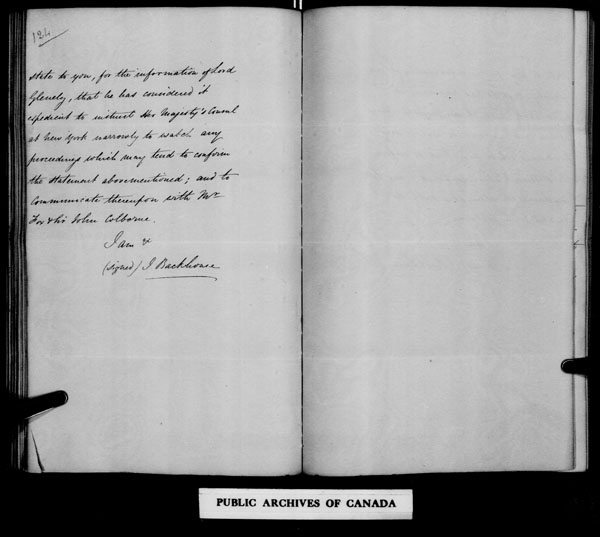 124
state to you, for the information of Lord
Glenelg, that he has considered it
expedient to instruct Her Majesty's Consul
at New York narrowly to watch any
proceedings which may tend to confirm
the statement abovementioned; and to
communicate thereupon with Mr
Fox & Sir John Colborne.
I am &
(signed) J Backhouse
PUBLIC ARCHIVES OF CANADA